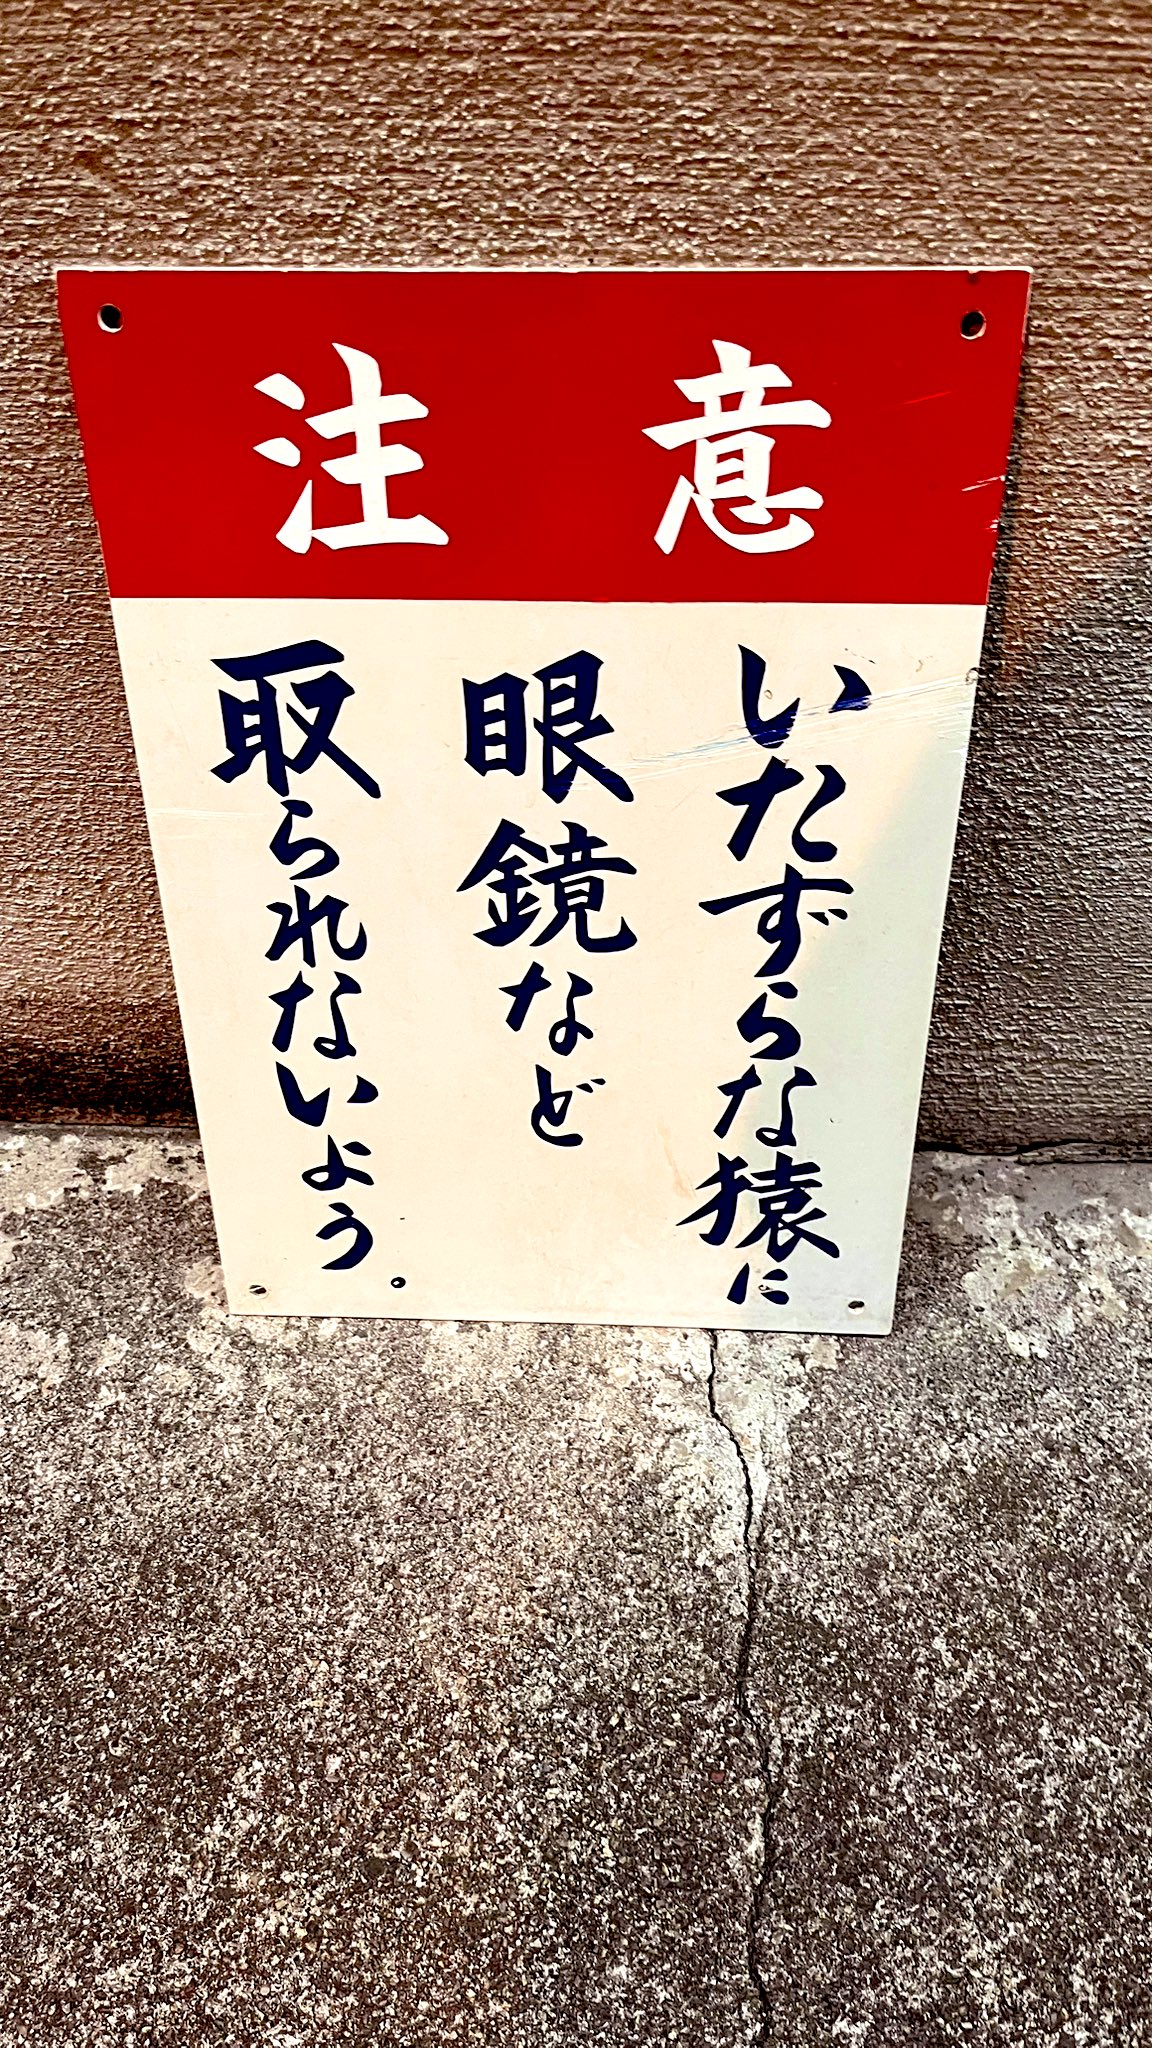 注意
いたずらな猿に
眼鏡など
取られないよう。